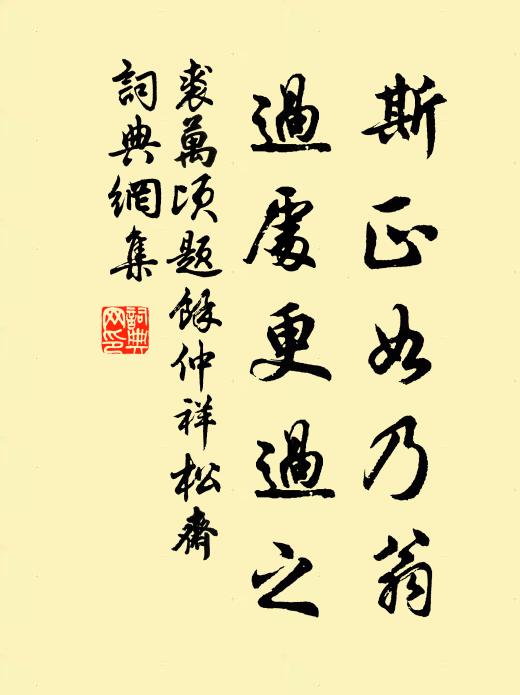 斯正如乃翁
過處更過之
裘萬頃題餘仲祥松齋
詞典網集
詞典網印